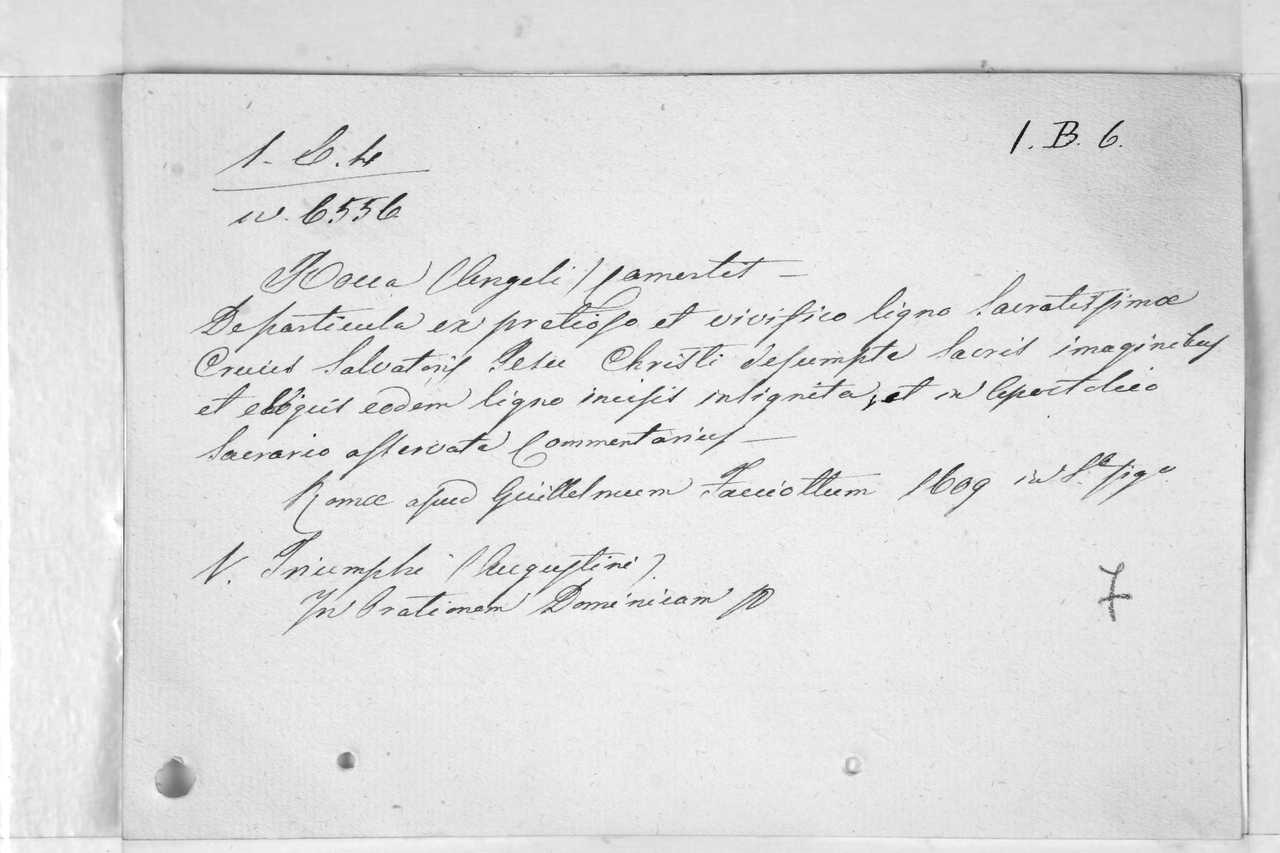 1. C. 4
1. B. 6.
nº. 6556
Rocca (Angeli) Camertet –
De particula ex pretioso et vivifico ligno Sacratissimæ
Crucis Salvatoris Jesu Christi desumpta Sacris imaginibus
et elogiis eodem ligno incisis insignita, et in Apostolico
Sacrario asservata Commentarius –
Romæ apud Guillelmum Facciottum 1609 in 4.
V. Triumphi (Augustini)
In Orationem Dominicam
7